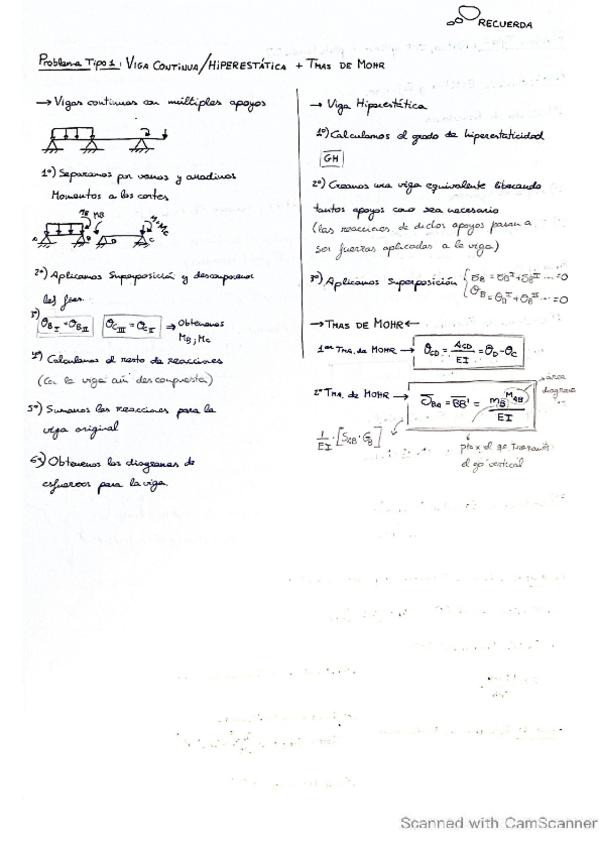 RECUERDA
Problema Tipo 1: VIGA CONTINUA/HIPERESTÁTICA + TMAS DE MOHR
→ Vigas continuas con múltiples apoyos
1º) Separamos por vanos y añadimos
Momentos a los cortes
MB MB
M=MC
A B D C
2º) Aplicamos Superposición y descomponemos
las
3º) θB I = θB II θC III = θC II ⇒ Obtenemos
MB; MC
4º) Calculamos el resto de reacciones
(Con la viga aún descompuesta)
5º) Sumamos las reacciones para la
viga original
6º) Obtenemos los diagramas de
esfuerzos para la viga.
→ Viga Hiperestática
1º) Calculamos el grado de hiperestaticidad
GH
2º) Creamos una viga equivalente liberando
tantos apoyos como sea necesario
(las reacciones de dichos apoyos pasan a
ser fuerzas aplicadas a la viga)
3º) Aplicamos Superposición { δB = δB^I + δB^II ... = 0
θB = θB^I + θB^II ... = 0
→ TMAS DE MOHR ←
1er TMA. de MOHR → θCD = ACD / EI = θD - θC
área
diagrama
2º TMA. de MOHR → δBA = BB' = mB^MAB / EI
1/EI · [SAB · GB]
pto x el q pq. transmite
el eje vertical
Scanned with CamScanner